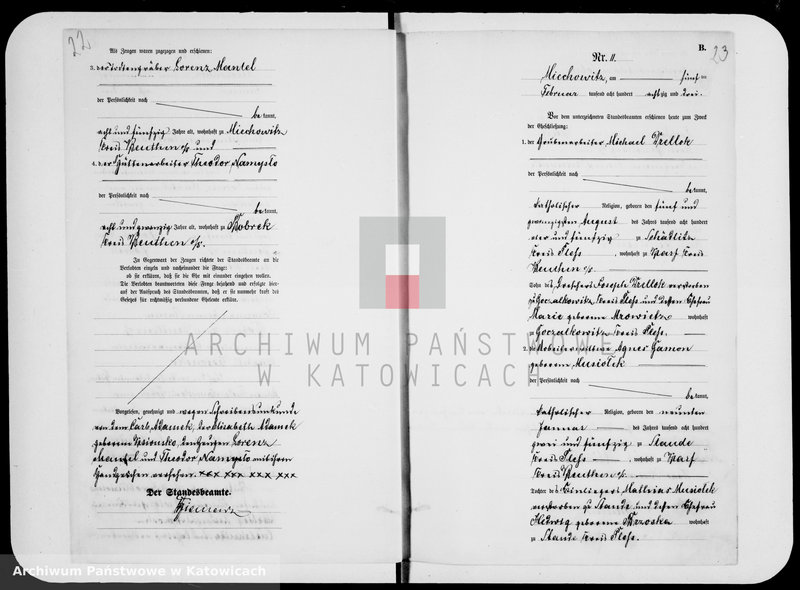 22
Als Zeugen waren zugezogen und erschienen:
3. der Todtengräber Lorenz Mantel
der Persönlichkeit nach
be kannt,
acht und fünfzig Jahre alt, wohnhaft zu Miechowitz
Kreis Beuthen o/s und
4. der Hüttenarbeiter Theodor Namyslo
der Persönlichkeit nach
be kannt,
acht und zwanzig Jahre alt, wohnhaft zu Bobrek
Kreis Beuthen o/s.
In Gegenwart der Zeugen richtete der Standesbeamte an die
Verlobten einzeln und nacheinander die Frage:
ob sie erklären, daß sie die Ehe mit einander eingehen wollen.
Die Verlobten beantworteten diese Frage bejahend und erfolgte hier-
auf der Ausspruch des Standesbeamten, daß er sie nunmehr kraft des
Gesetzes für rechtmäßig verbundene Eheleute erkläre.
Vorgelesen, genehmigt und wegen Schreibensunkunde
von dem Carl Mamok, der Elisabeth Mamok
geborenen, den Zeugen Lorenz
Mantel und Theodor Namyslo mit ihren
Handzeichen versehen. xxx xxx xxx xxx
Der Standesbeamte.
B.
23
Nr. 11.
Miechowitz, am fünften
Februar tausend acht hundert achtzig und drei.
Vor dem unterzeichneten Standesbeamten erschienen heute zum Zweck
der Eheschließung:
1. der Grubenarbeiter Michael Krellok
der Persönlichkeit nach
be kannt,
katholischer Religion, geboren den fünf und
zwanzigsten August des Jahres tausend acht hundert
vier und fünfzig zu Schädlitz
Kreis Pleß, wohnhaft zu Karf Kreis
Beuthen o/s.
Sohn des Joseph Krellok verstorben
zu Goczalkowitz Kreis Pleß und dessen Ehefrau
Marie geborene Mrowietz wohnhaft
zu Goczalkowitz Kreis Pleß.
2. die Agnes Gamon
geborene Musiolek
der Persönlichkeit nach
be kannt,
katholischer Religion, geboren den neunten
Januar des Jahres tausend acht hundert
zwei und fünfzig zu Staude
Kreis Pleß, wohnhaft zu Karf
Kreis Beuthen o/s.
Tochter des Einliegers Mathias Musiolek
verstorben zu Staude und dessen Ehefrau
Hedwig geborene Brzoska wohnhaft
zu Staude Kreis Pleß.
ARCHIWUM PAŃSTWOWE
W KATOWICACH
Archiwum Państwowe w Katowicach